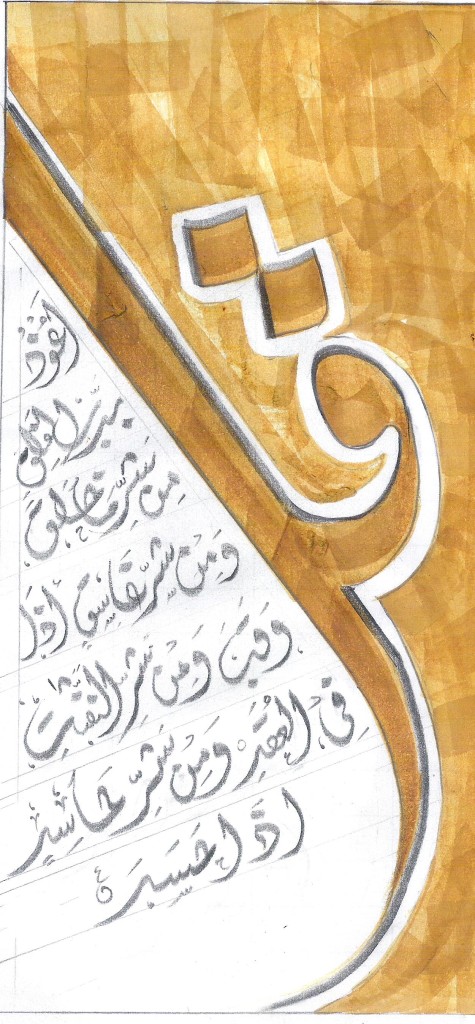 قل
اعوذ
برب الفلق
من شر ما خلق
ومن شر غاسق اذا
وقب ومن شر النفثت
فى العقد ومن شر حاسد
اذا حسد